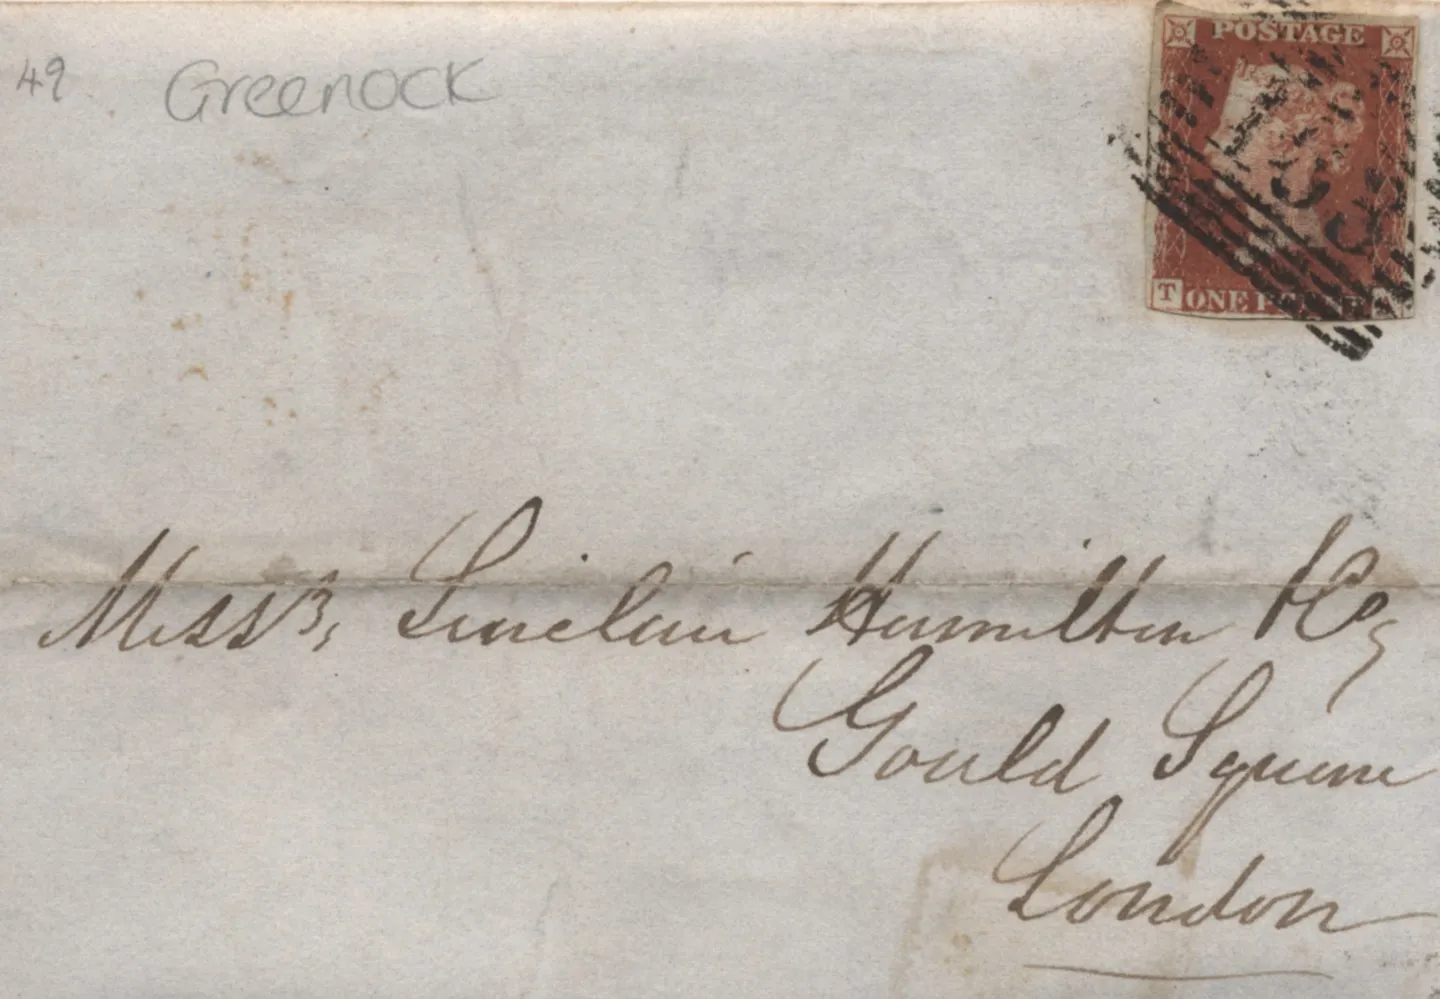 49 Greenock
POSTAGE
T ONE
Messrs, Sinclair Hamilton & Co
Gould Square
London